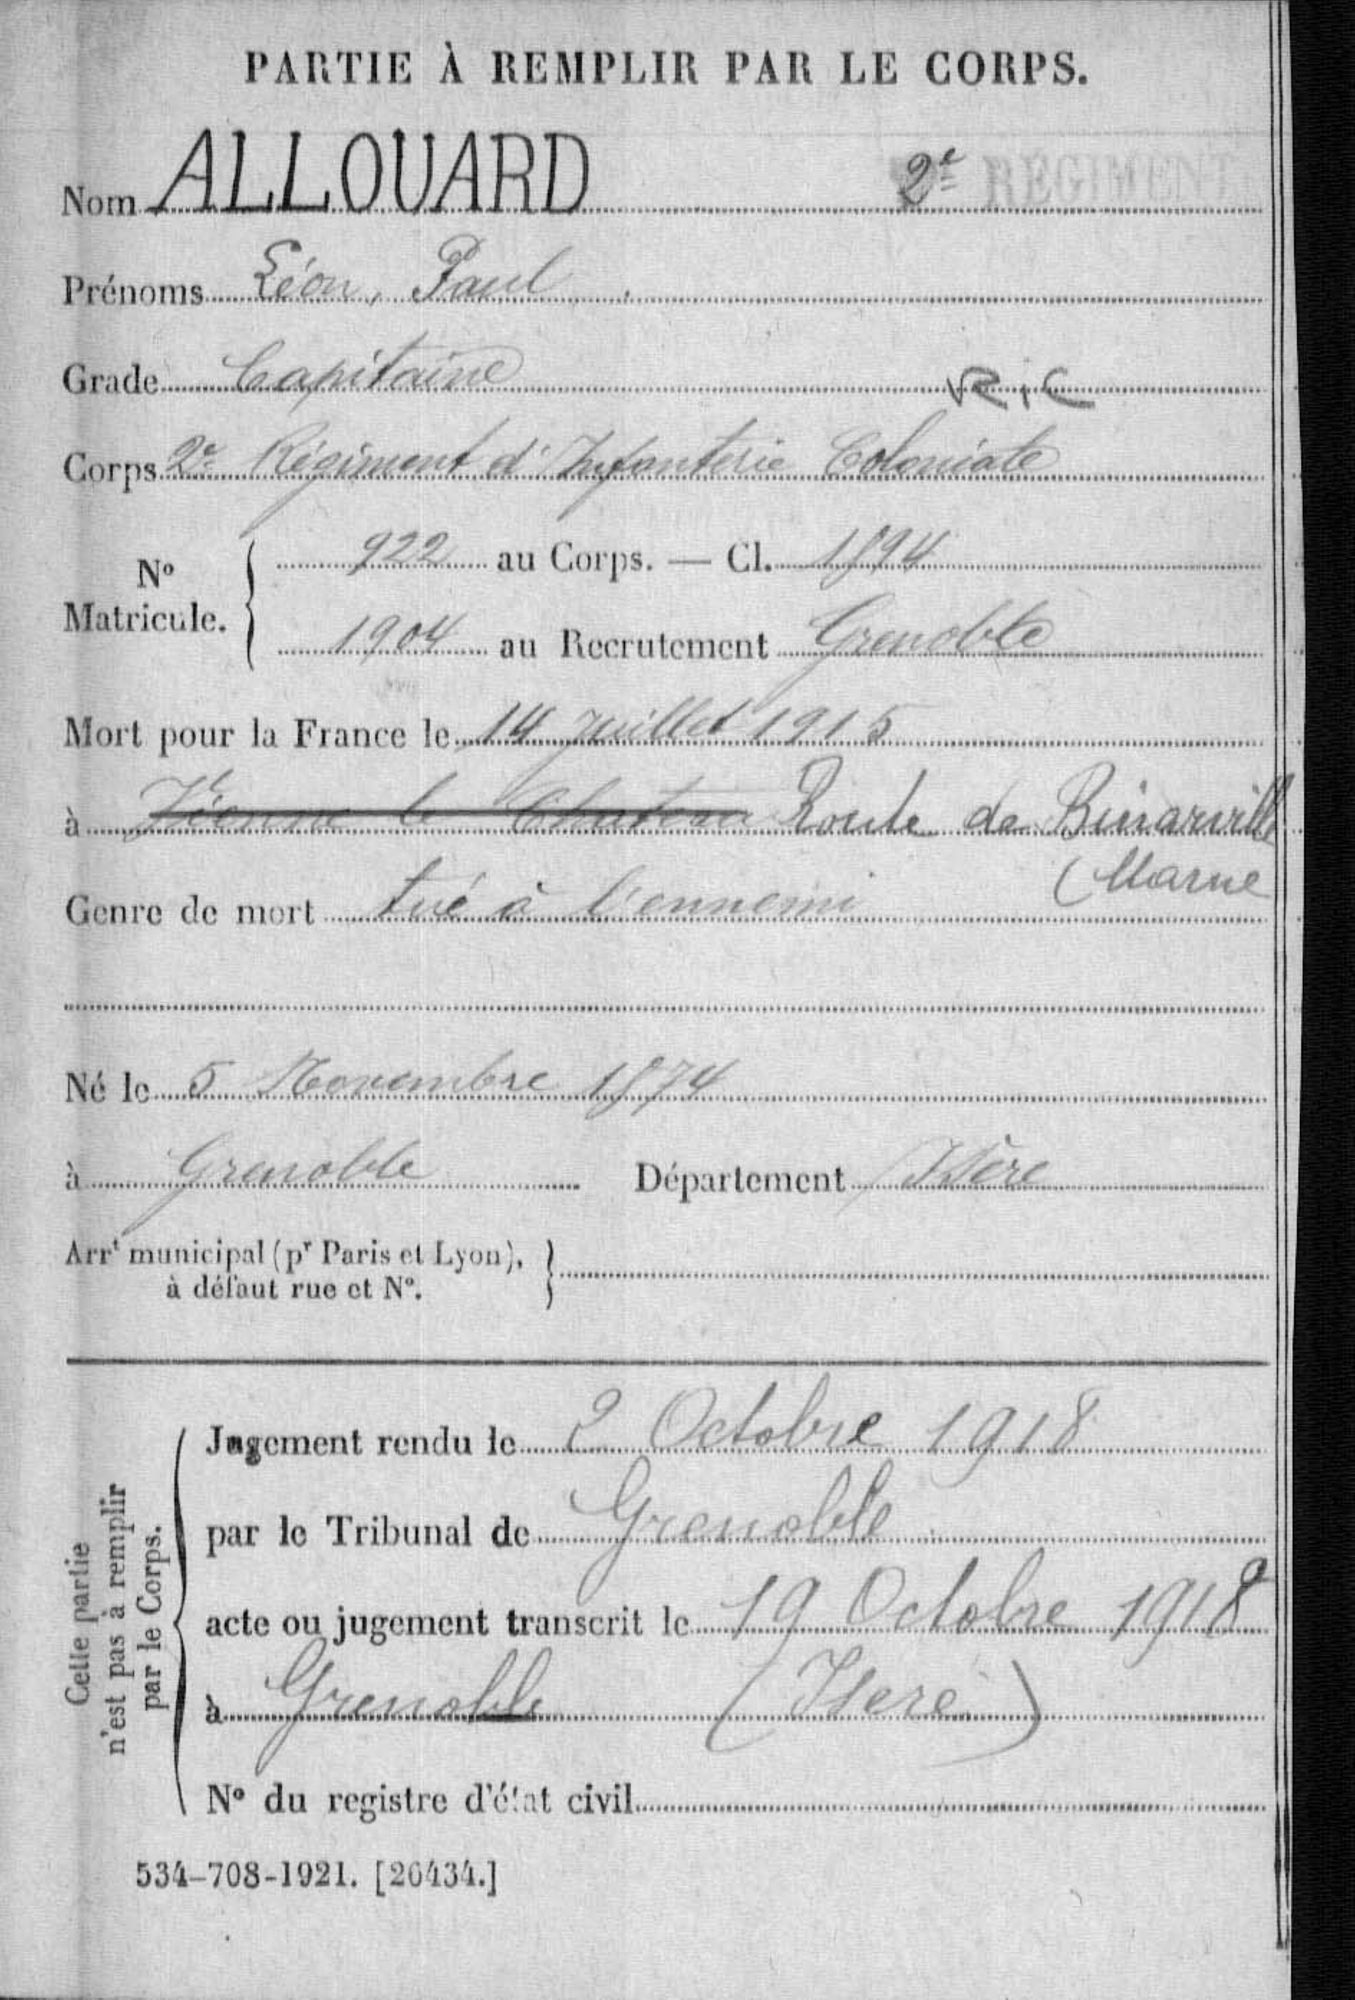 PARTIE À REMPLIR PAR LE CORPS.
Nom ALLOUARD 2e RÉGIMENT
Prénoms Léon, Paul
Grade Capitaine R.I.C
Corps 2e Régiment d'Infanterie Coloniale
No Matricule. 922 au Corps. — Cl. 1894
1904 au Recrutement Grenoble
Mort pour la France le 14 Juillet 1915
à Vienne le Chateau Route de Binarville
(Marne
Genre de mort tué à l'ennemi
Né le 5 Novembre 1874
à Grenoble Département Isère
Arrt municipal (pr Paris et Lyon),
à défaut rue et No.
Cette partie
n'est pas à remplir
par le Corps.
Jugement rendu le 2 Octobre 1918
par le Tribunal de Grenoble
acte ou jugement transcrit le 19 Octobre 1918
à Grenoble (Isere)
No du registre d'état civil
534-708-1921. [26434.]